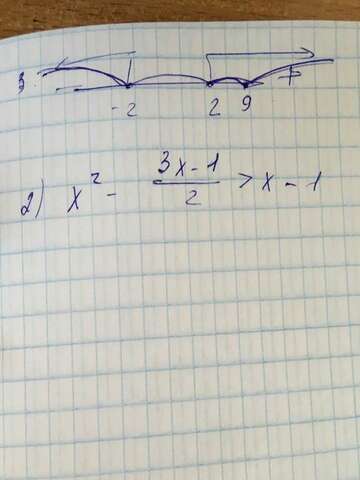 -2 2 9
2) x² - (3x-1)/2 > x - 1